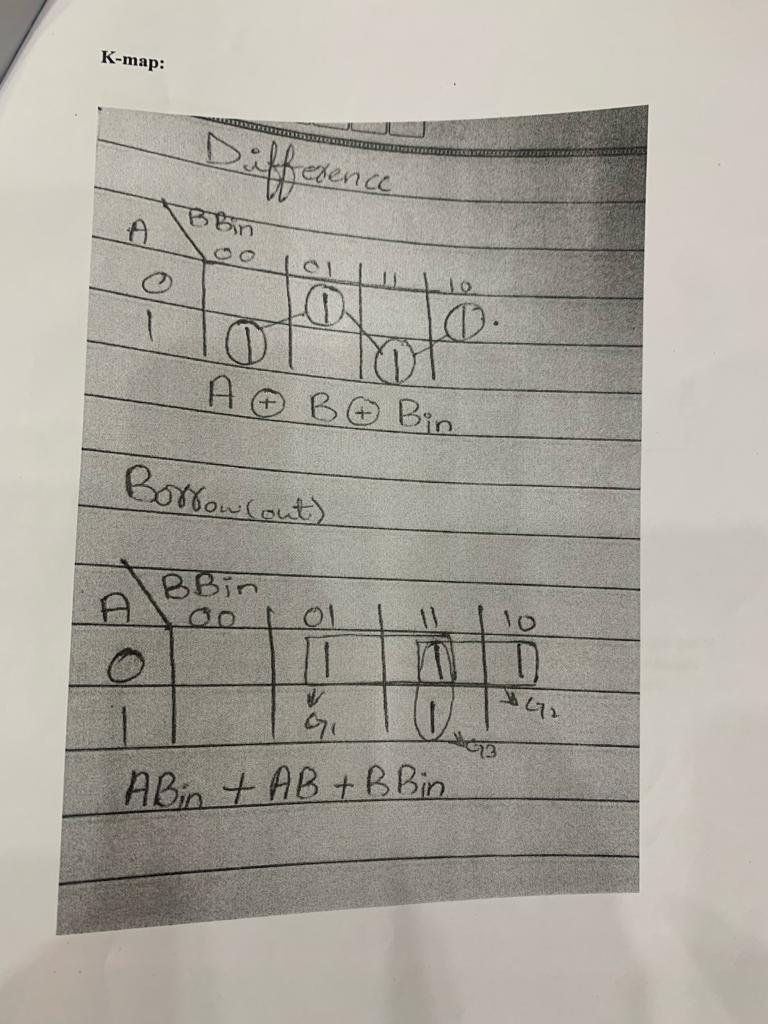 K-map:
Difference
A BBin
00 01 11 10
0 1 1
1 1 1
A ⊕ B ⊕ Bin
Borrow(out)
A BBin
00 01 11 10
0 1 1 1
1 1
G1 G2
G3
ABin + AB + BBin